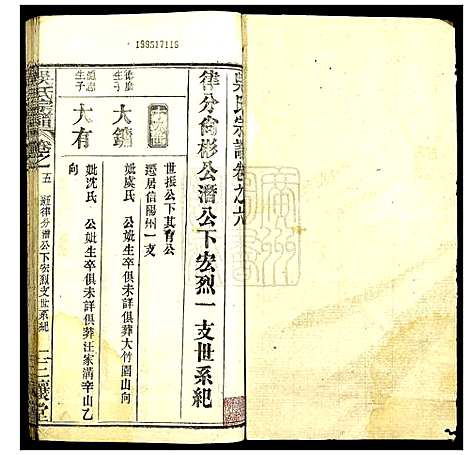 199517116
吳氏宗譜卷之六
律分尙彬公潛公下宏烈一支世系紀
世振公下其育公
遷居信陽州一支
生子
大鏞
妣虞氏 公妣生卒俱未詳俱葬大竹園山向
生子
大有
妣沈氏 公妣生卒俱未詳俱葬汪家溝辛山乙
向
吳氏宗譜 卷之
五
律分潛公下宏烈支世系紀
三讓堂